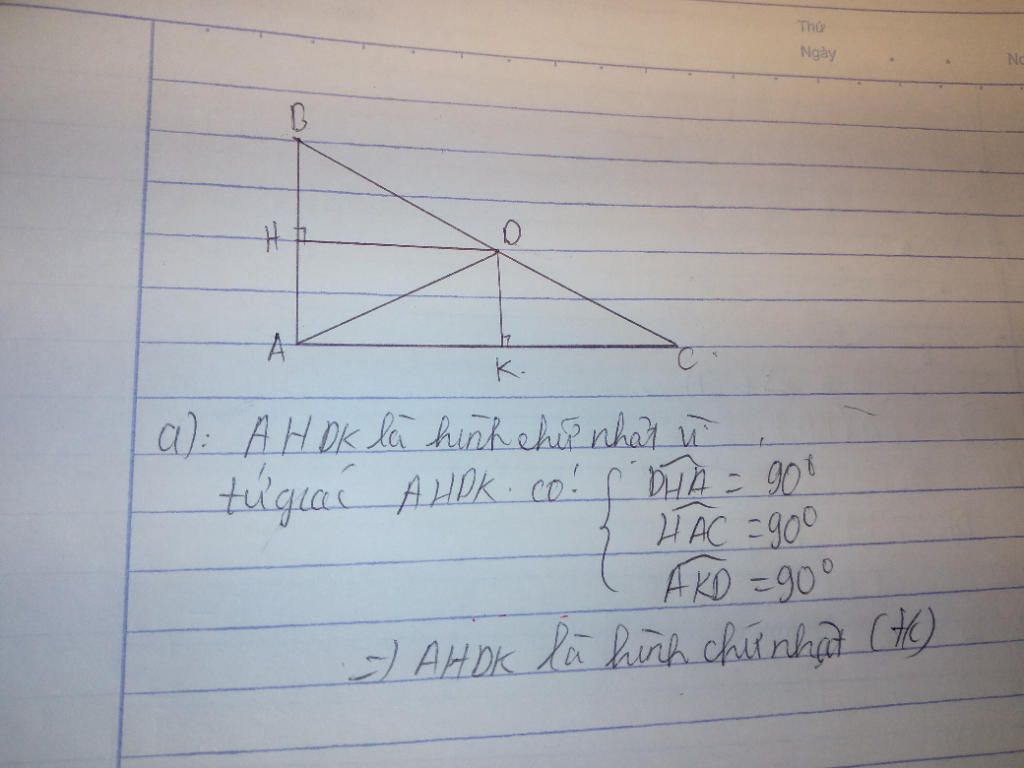 Thứ
Ngày
No
B
H
D
A
K.
C
a): AHDK là hình chữ nhật vì
tứ giác AHDK. có: { DHA = 90°
HAC = 90°
AKD = 90°
=) AHDK là hình chữ nhật (tc)